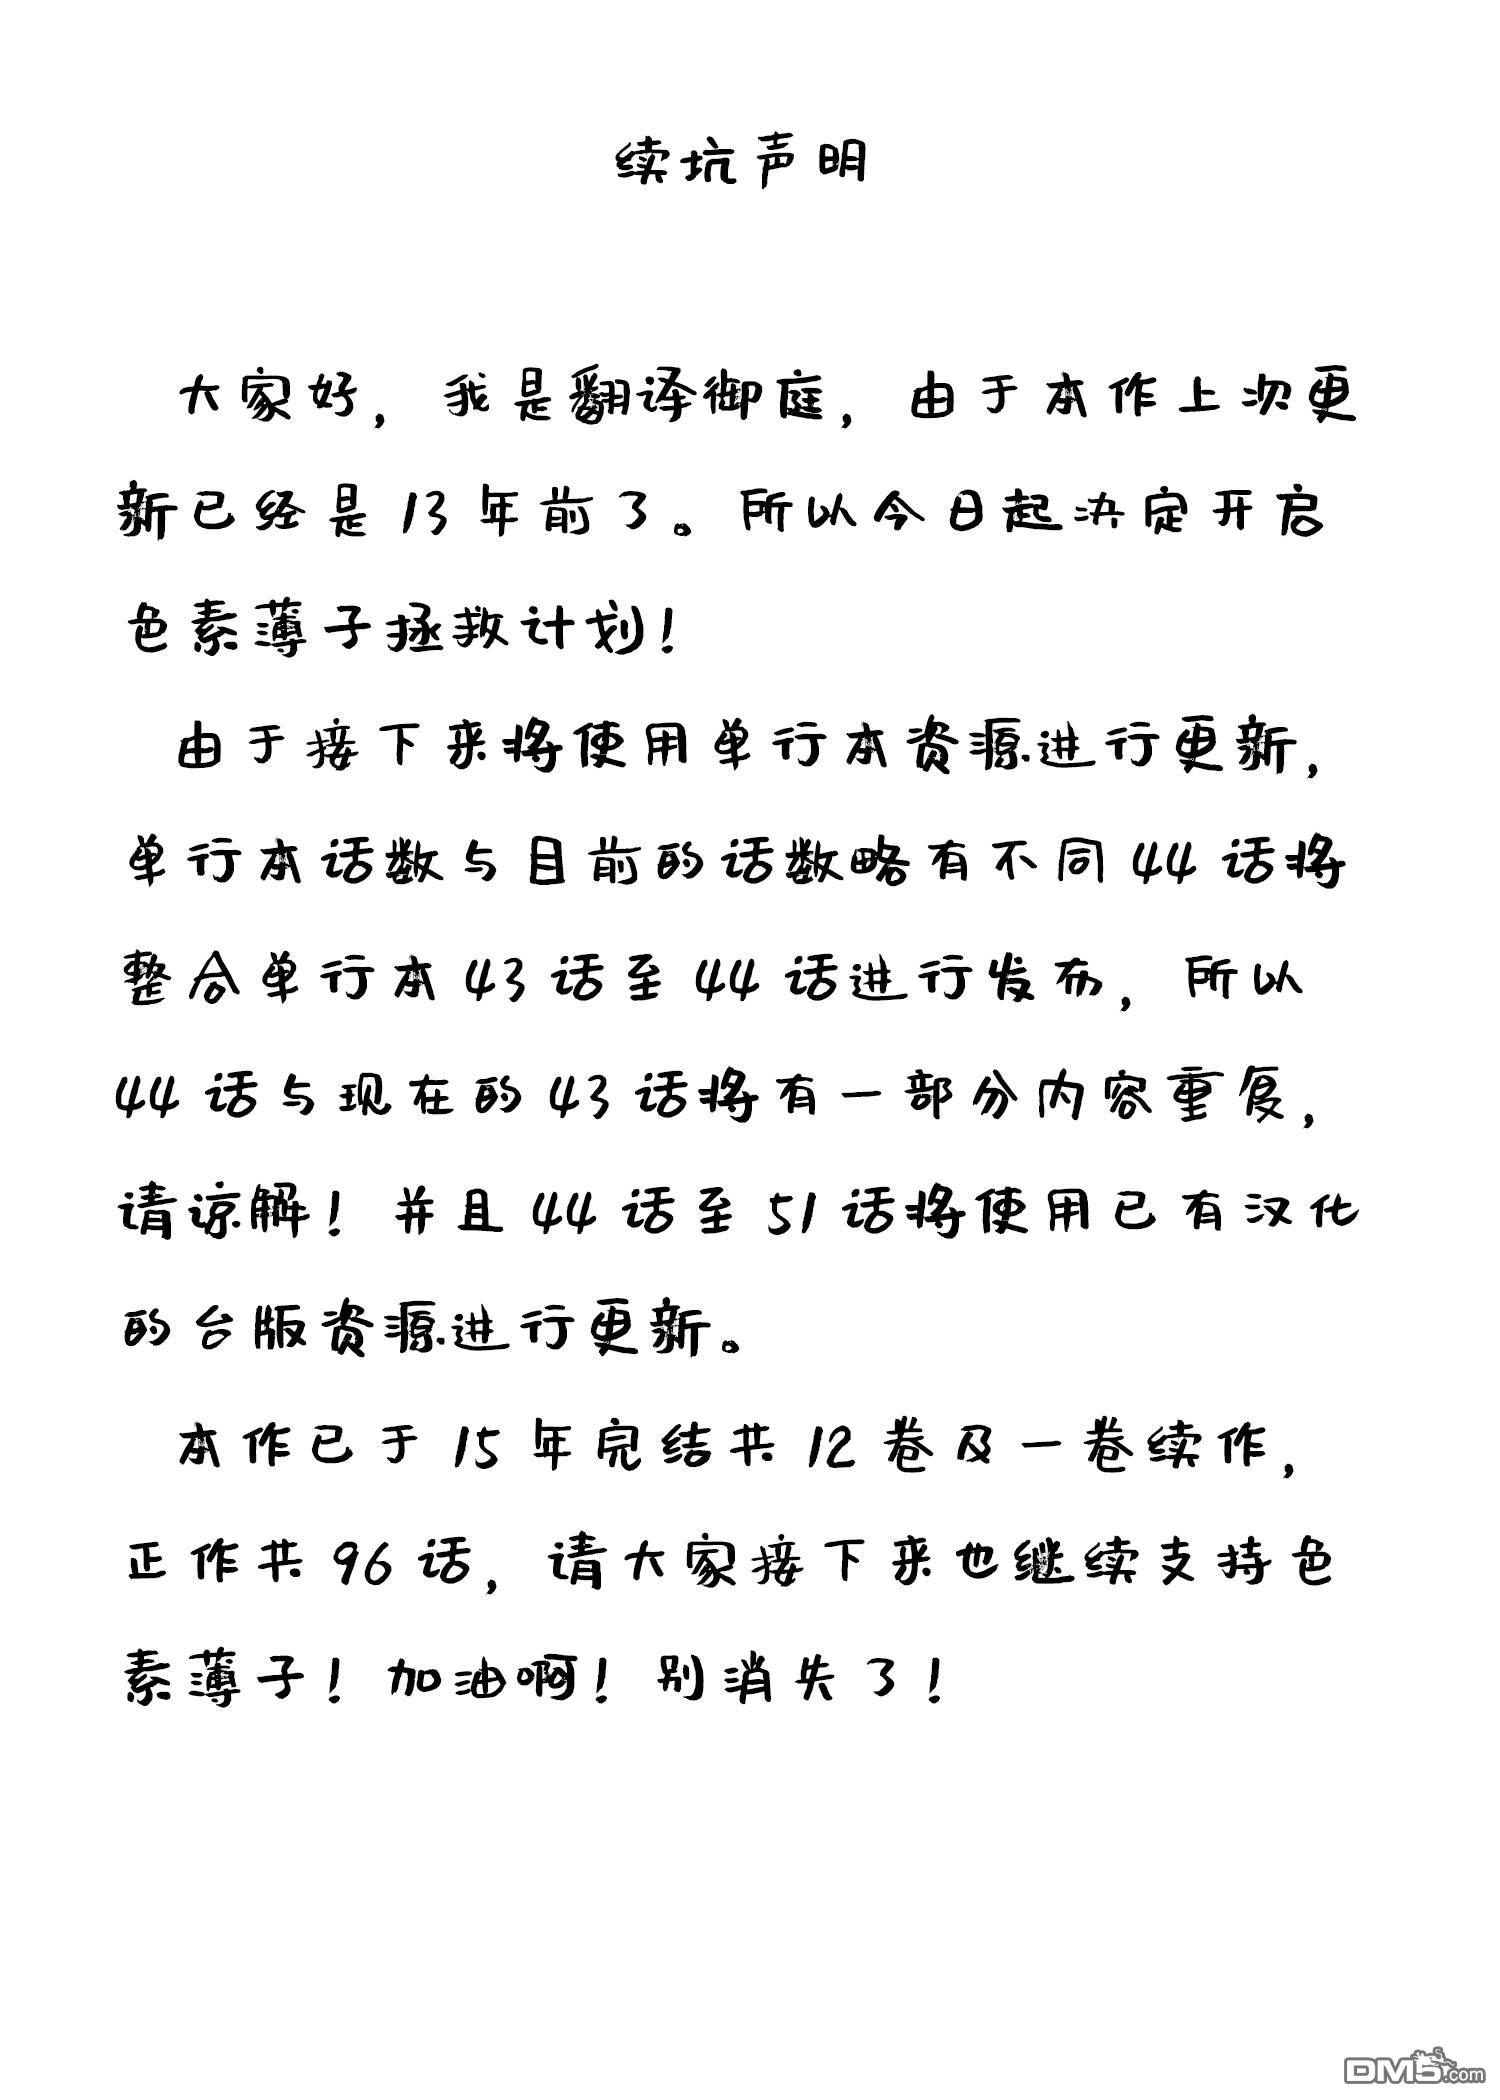 续坑声明
大家好，我是翻译御庭，由于本作上次更
新已经是13年前了。所以今日起决定开启
色素薄子拯救计划！
由于接下来将使用单行本资源进行更新，
单行本话数与目前的话数略有不同44话将
整合单行本43话至44话进行发布，所以
44话与现在的43话将有一部分内容重复，
请谅解！并且44话至51话将使用已有汉化
的台版资源进行更新。
本作已于15年完结共12卷及一卷续作，
正作共96话，请大家接下来也继续支持色
素薄子！加油啊！别消失了！
DM5.com